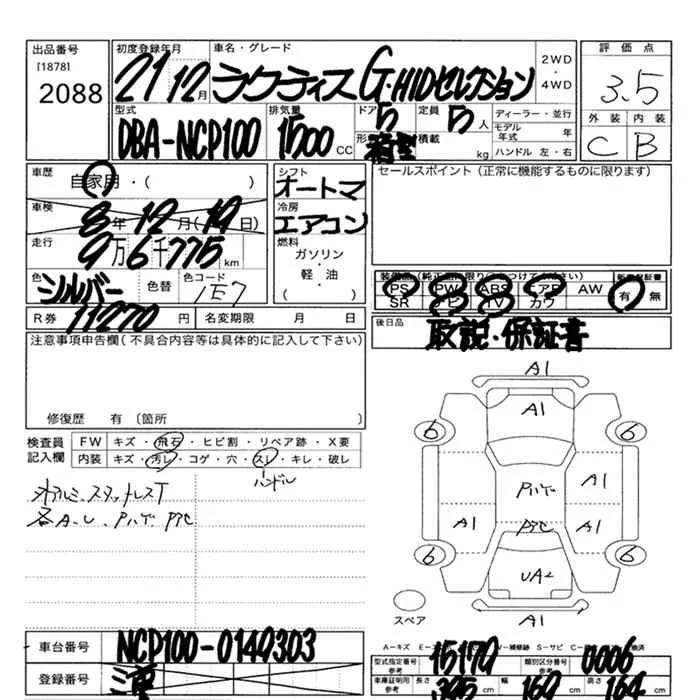 出品番号
[1878]
2088
初度登録年月
21 12月
車名・グレード
ラクティス G・HIDセレクション
2WD
・
4WD
評価点
3.5
外装 内装
C B
型式
DBA-NCP100
排気量
1500 CC
ドア 5
定員 5人
積載 kg
ディーラー・並行
モデル年式 年
ハンドル 左・右
車歴
自家用・( )
車検
8年 12月(19日)
走行
9万6千775km
色
シルバー
色替
色コード
1E7
R券 11270円
名変期限 月 日
シフト
オートマ
冷房
エアコン
燃料
ガソリン
・
軽・油
( )
セールスポイント(正常に機能するものに限ります)
PS PW ABS エアB AW
SR ナビ TV カワ
有 無
後日品
取説・保証書
注意事項申告欄(不具合内容等は具体的に記入して下さい)
修復歴 有 〔箇所 〕
検査員
記入欄
FW キズ・飛石・ヒビ割・リペア跡・X要
内装 キズ・汚レ・コゲ・穴・スレ・キレ・破レ
ハンドル
各A・U
A1
A1
6 6
A1
A1 A1
6 6
UA2
A1
スペア
車台番号
NCP100-0149303
登録番号
三重
型式指定番号
参考
15179
類別区分番号
参考
0006
車庫証明用
参考
長さ 395 cm
幅 169 cm
高さ 164 cm